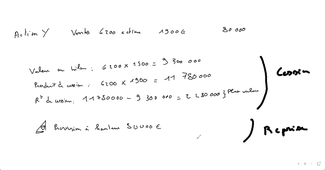 Action Y Vente 6200 action 1900€ 80 000
Valeur au bilan : 6200 x 1500 = 9 300 000
Produit de cession : 6200 x 1900 = 11 780 000
Rt de cession : 11 780 000 - 9 300 000 = 2 480 000 } Plus value
Cession
Provision à hauteur 80 000 €
Reprise